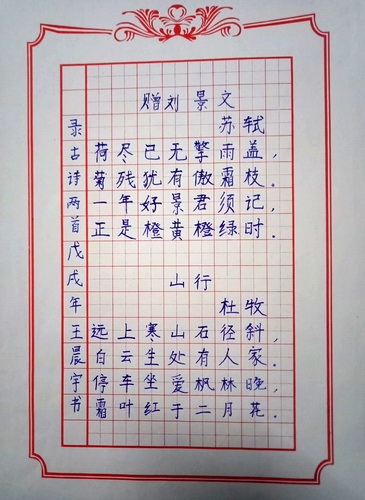 赠刘景文
苏轼
荷尽已无擎雨盖，
菊残犹有傲霜枝。
一年好景君须记，
正是橙黄橙绿时．
山行
杜牧
远上寒山石径斜，
白云生处有人家．
停车坐爱枫林晚，
霜叶红于二月花．
录古诗两首戊戌年王晨宇书